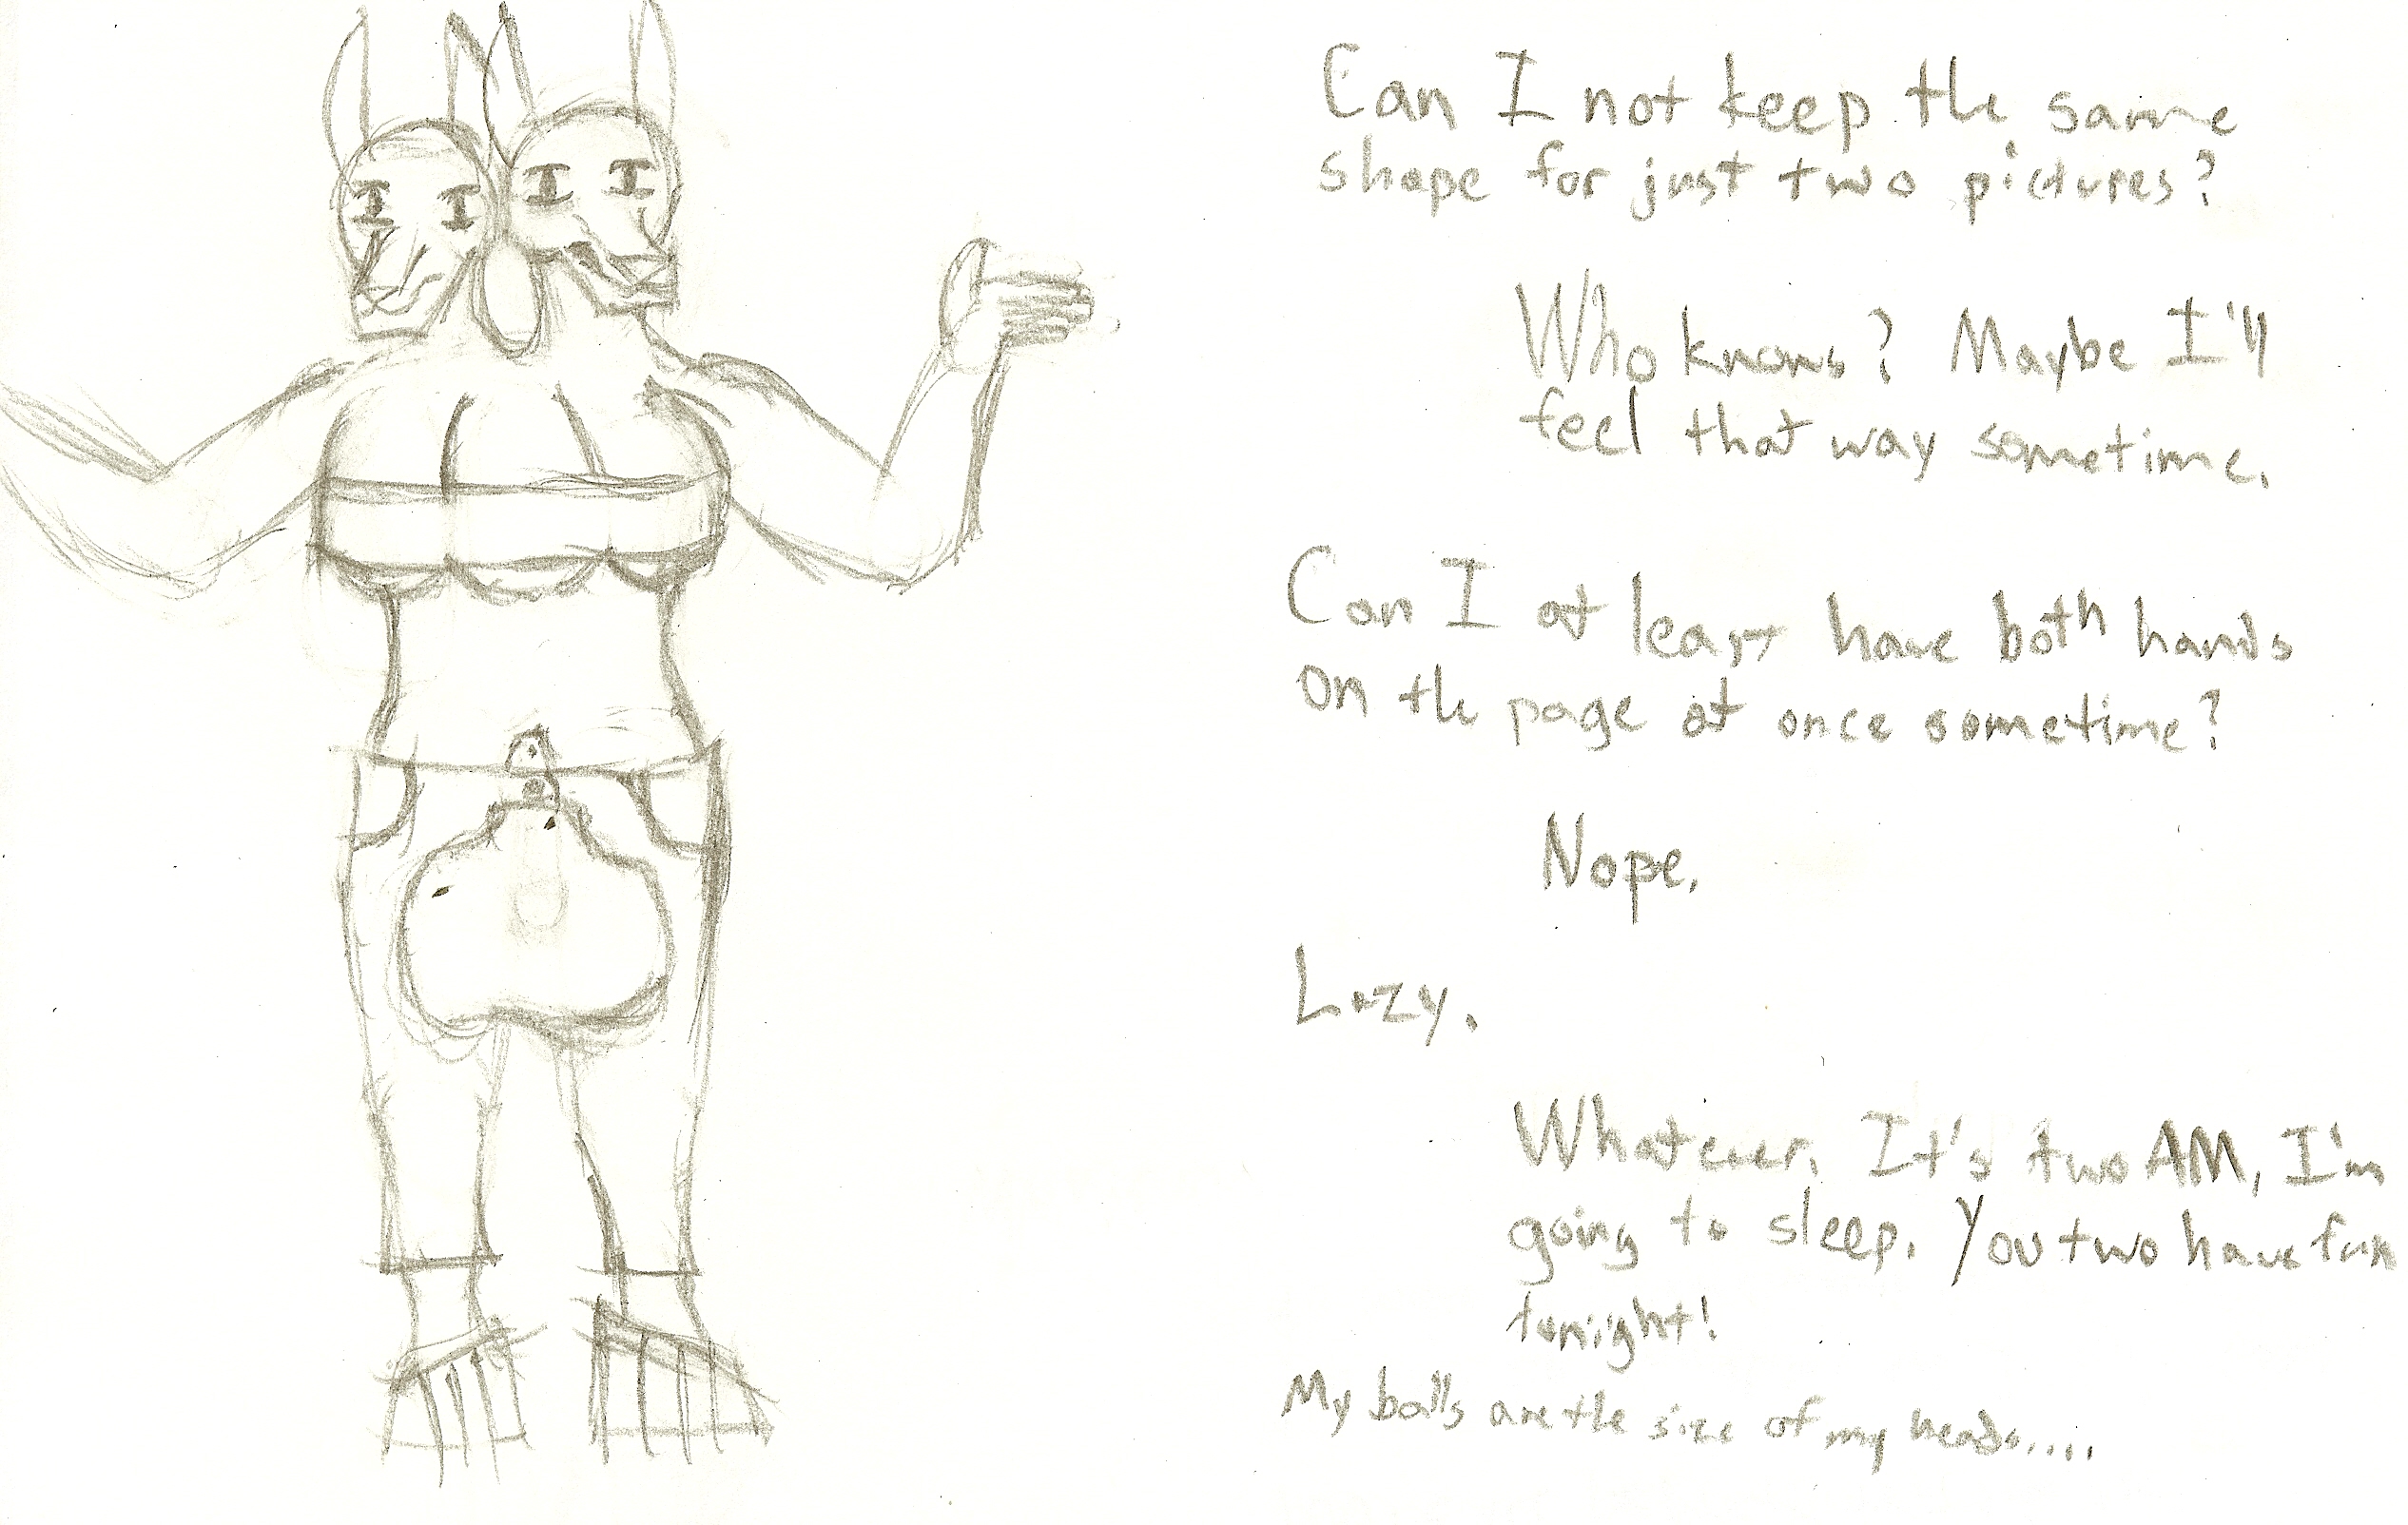 Can I not keep the same
shape for just two pictures?
Who knows? Maybe I'll
feel that way sometime.
Can I at least have both hands
on the page at once sometime?
Nope.
Lazy.
Whatever. It's two AM, I'm
going to sleep. You two have fun
tonight!
My balls are the size of my heads....